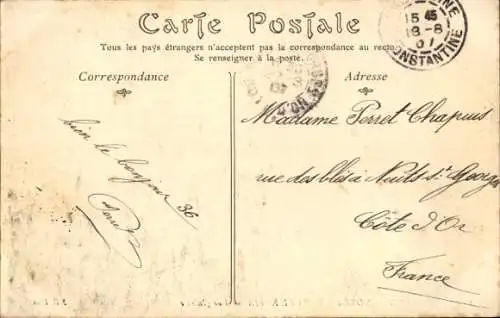 Carte Postale
Tous les pays étrangers n'acceptent pas la correspondance au recto
Se renseigner à la poste.
Correspondance
Adresse
bien le bonjour
36
Madame Perret Chapuis
rue des blés à Nuits St Georges
Côte d'Or
France
15 45
18-8
07
CONSTANTINE